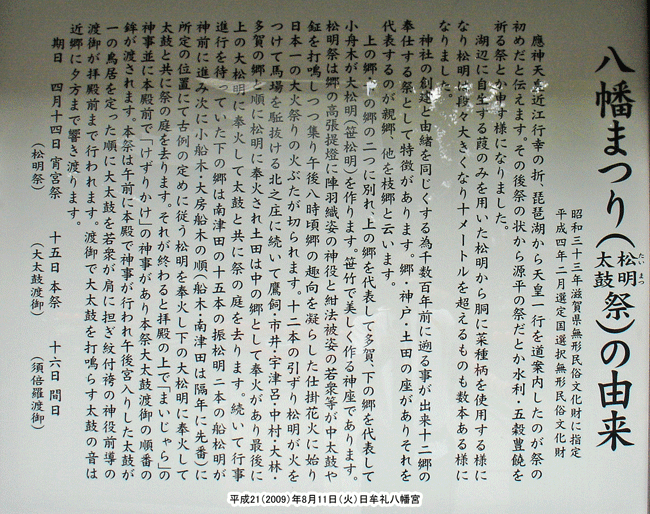 八幡まつり(松明 太鼓 祭)の由来
たいまつ
昭和三十三年滋賀県無形民俗文化財に指定
平成四年二月選定国選択無形民俗文化財
應神天皇近江行幸の折、琵琶湖から天皇一行を道案内したのが祭の
初めだと伝えます。その後祭の状から源平の祭だとか水利・五穀豊饒を
祈る祭とか申す様になりました。
湖辺に自生する葭のみを用いた松明から胴に菜種柄を使用する様に
なり松明は段々大きくなり十メートルを超えるものも数本ある様に
なりました。
神社の創建と由緒を同じくする為千数百年前に遡る事が出来十二郷の
奉仕する祭として特徴があります。郷・神戸・土田の座がありそれを
代表するのが親郷、他を枝郷と云います。
上の郷下の郷の二つに別れ、上の郷を代表して多賀、下の郷を代表して
小舟木が大松明(笹松明)を作ります。笹竹で美しく作る神座であります。
松明祭は郷の高張提燈に陣羽織姿の神役と紺法被姿の若衆等が中太鼓や
鉦を打鳴しつつ集り午後八時頃郷の趣向を凝らした仕掛花火に始り
日本一の大火祭りの火ぶたが切られます。十二本の引ずり松明が火を
つけて馬場を駈抜ける北之庄に続いて鷹飼・市井・宇津呂・中村・大林・
多賀の郷と順に松明に奉火され土田は中の郷として奉火があり最後に
上の大松明に奉火して太鼓と共に祭の庭を去ります。続いて行事
進行を待っていた下の郷は南津田の十五本の振松明二本の船松明が
神前に進み次に小船木・大房船木の順(船木・南津田は隔年に先番)に
所定の位置にて古例の定めに従う松明を奉火し下の大松明に奉火して
太鼓と共に祭の庭を去ります。それが終わると拝殿の上で「まいじゃら」の
神事並に本殿前で「けずりかけ」の神事があり本祭大太鼓渡御の順番の
鉾が渡されます。本祭は午前に本殿で神事が行われ午後宮入りした太鼓が
一の鳥居を定った順に大太鼓を若衆が肩に担ぎ紋付袴の神役前導の
渡御が拝殿前まで行われます。渡御で大太鼓を打鳴らす太鼓の音は
近郷に夕方まで響き渡ります。
期日 四月十四日 宵宮祭 十五日 本祭 十六日 間日
(松明祭) (大太鼓渡御) (須倍羅渡御)
平成21(2009)年8月11日(火)日牟礼八幡宮